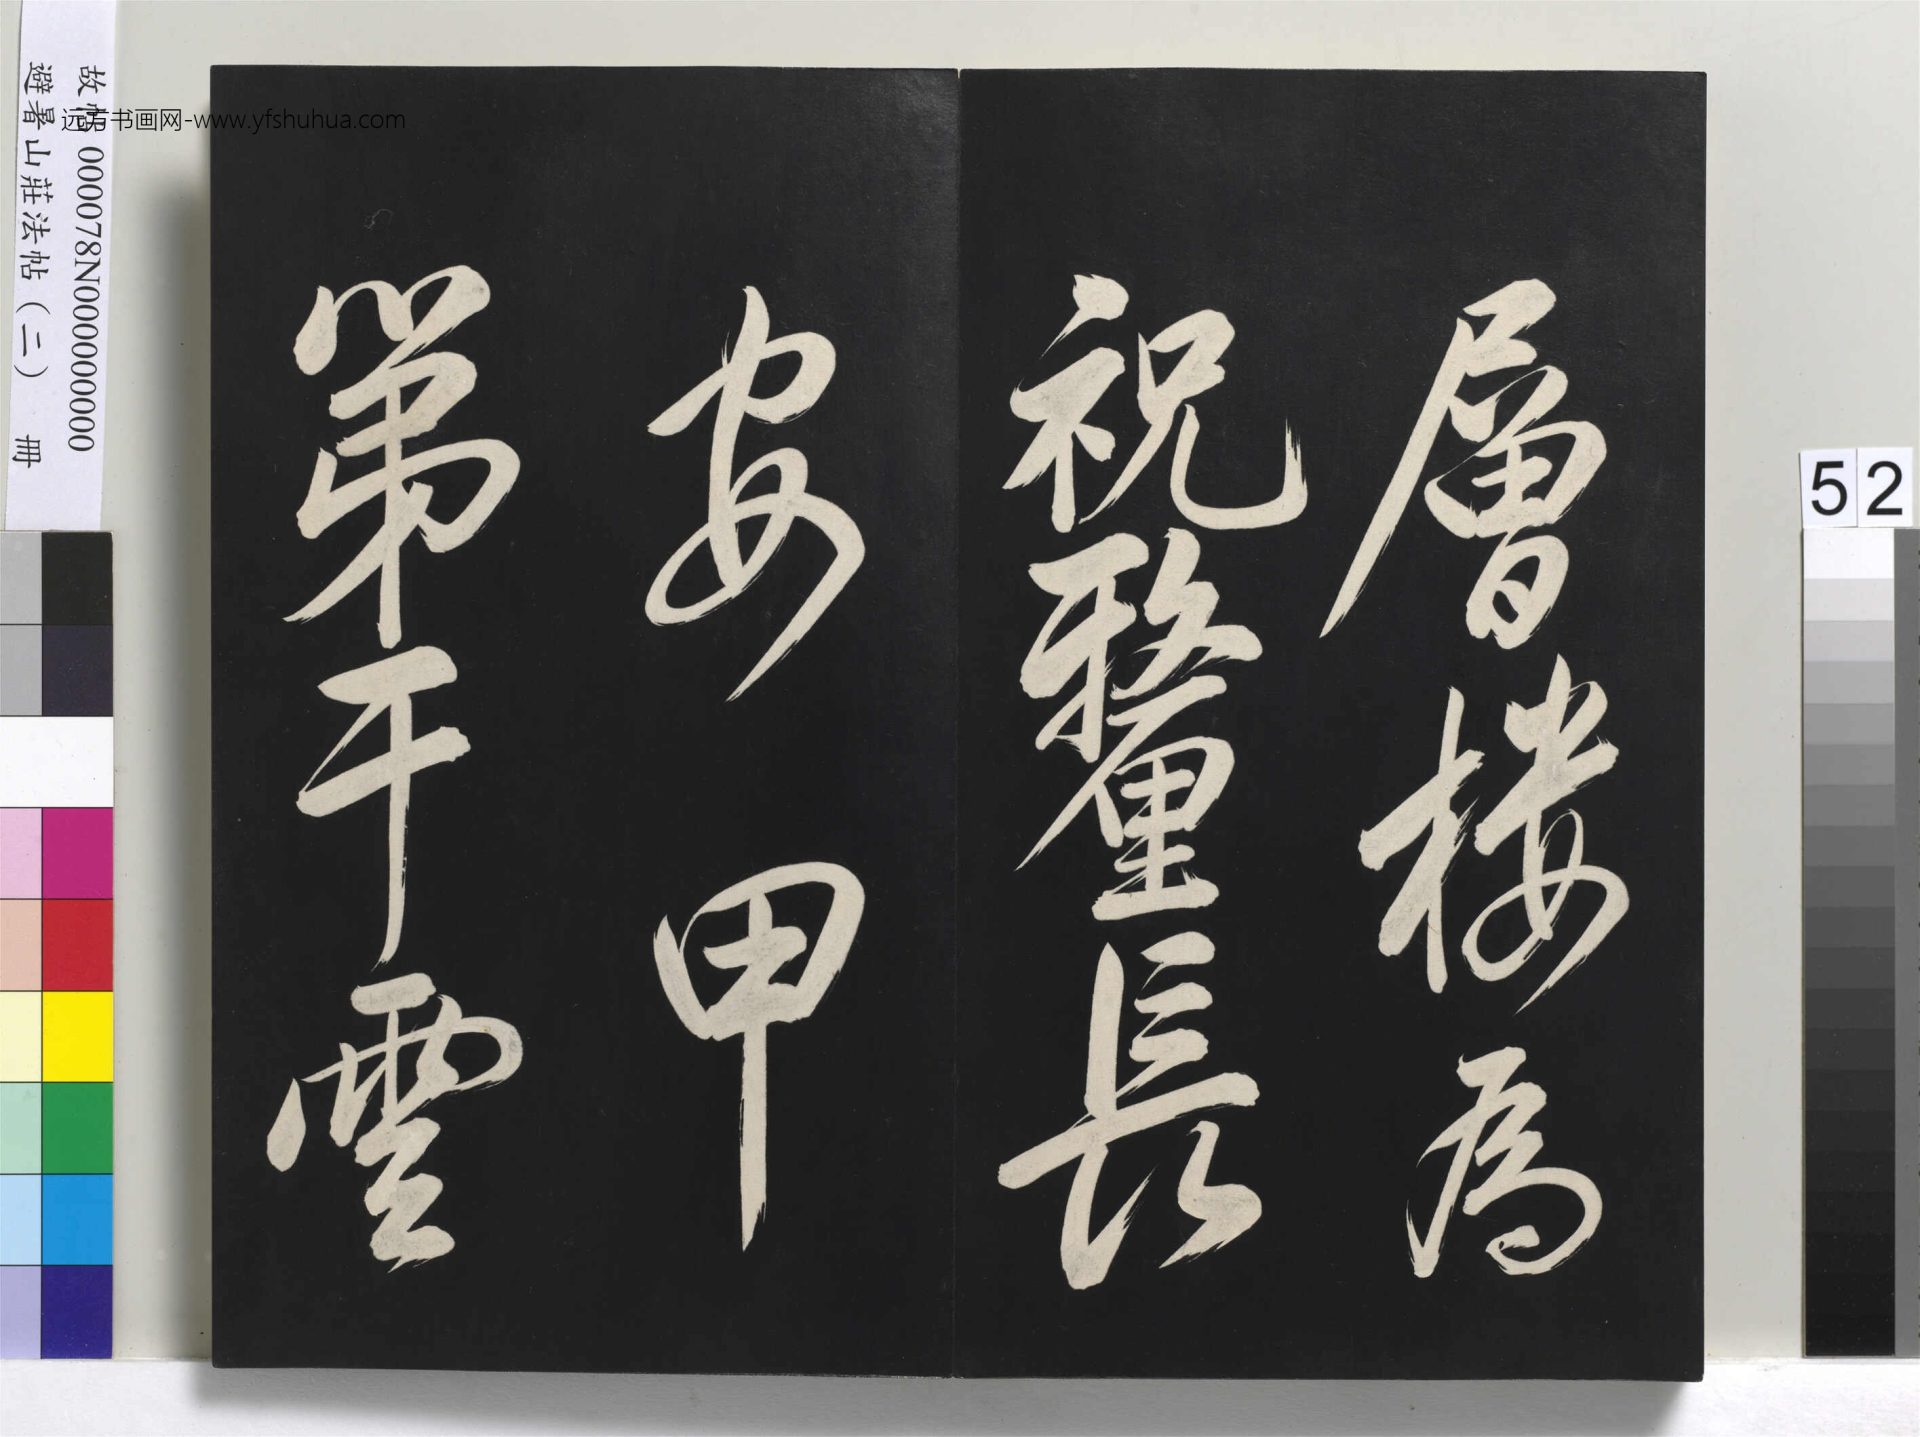 層樓為
祝釐長
安甲
第干雲
故帖 000078N000000000
避暑山莊法帖(二) 冊
远方书画网-www.yfshuhua.com
52